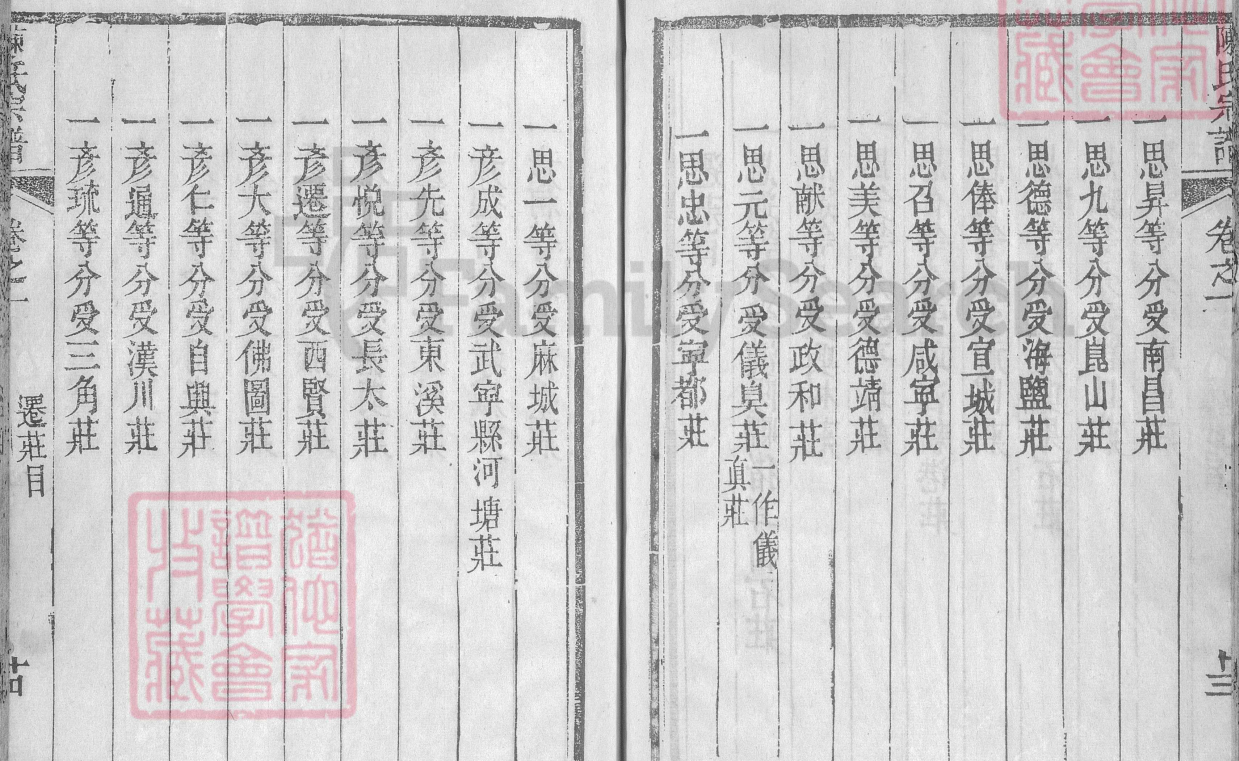 陳氏宗譜
卷之一
十三
一思昇等分受南昌莊
一思九等分受崑山莊
一思德等分受海鹽莊
一思俸等分受宣城莊
一思召等分受咸寧莊
一思美等分受德靖莊
一思献等分受政和莊
一思元等分受儀臭莊一作儀真莊
一思忠等分受寧都莊
一思一等分受麻城莊
一彥成等分受武寧縣河塘莊
一彥先等分受東溪莊
一彥悦等分受長太莊
一彥遷等分受西賢莊
一彥大等分受佛圖莊
一彥仁等分受自興莊
一彥通等分受漢川莊
一彥琉等分受三角莊
陳氏宗譜
卷之一
遷莊目
十四
FamilySearch
譜學會
收藏